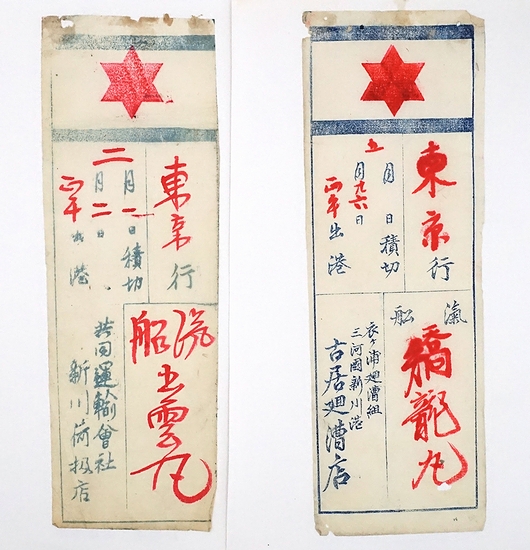 東京行
二月一日積切
二月二日正午出港
汽船出雲丸
共同運輸會社
新川荷扱店
東京行
五月 日積切
月廿六日正午出港
滊船
矯龍丸
衣ヶ浦廻漕組
三河國新川港
古居廻漕店